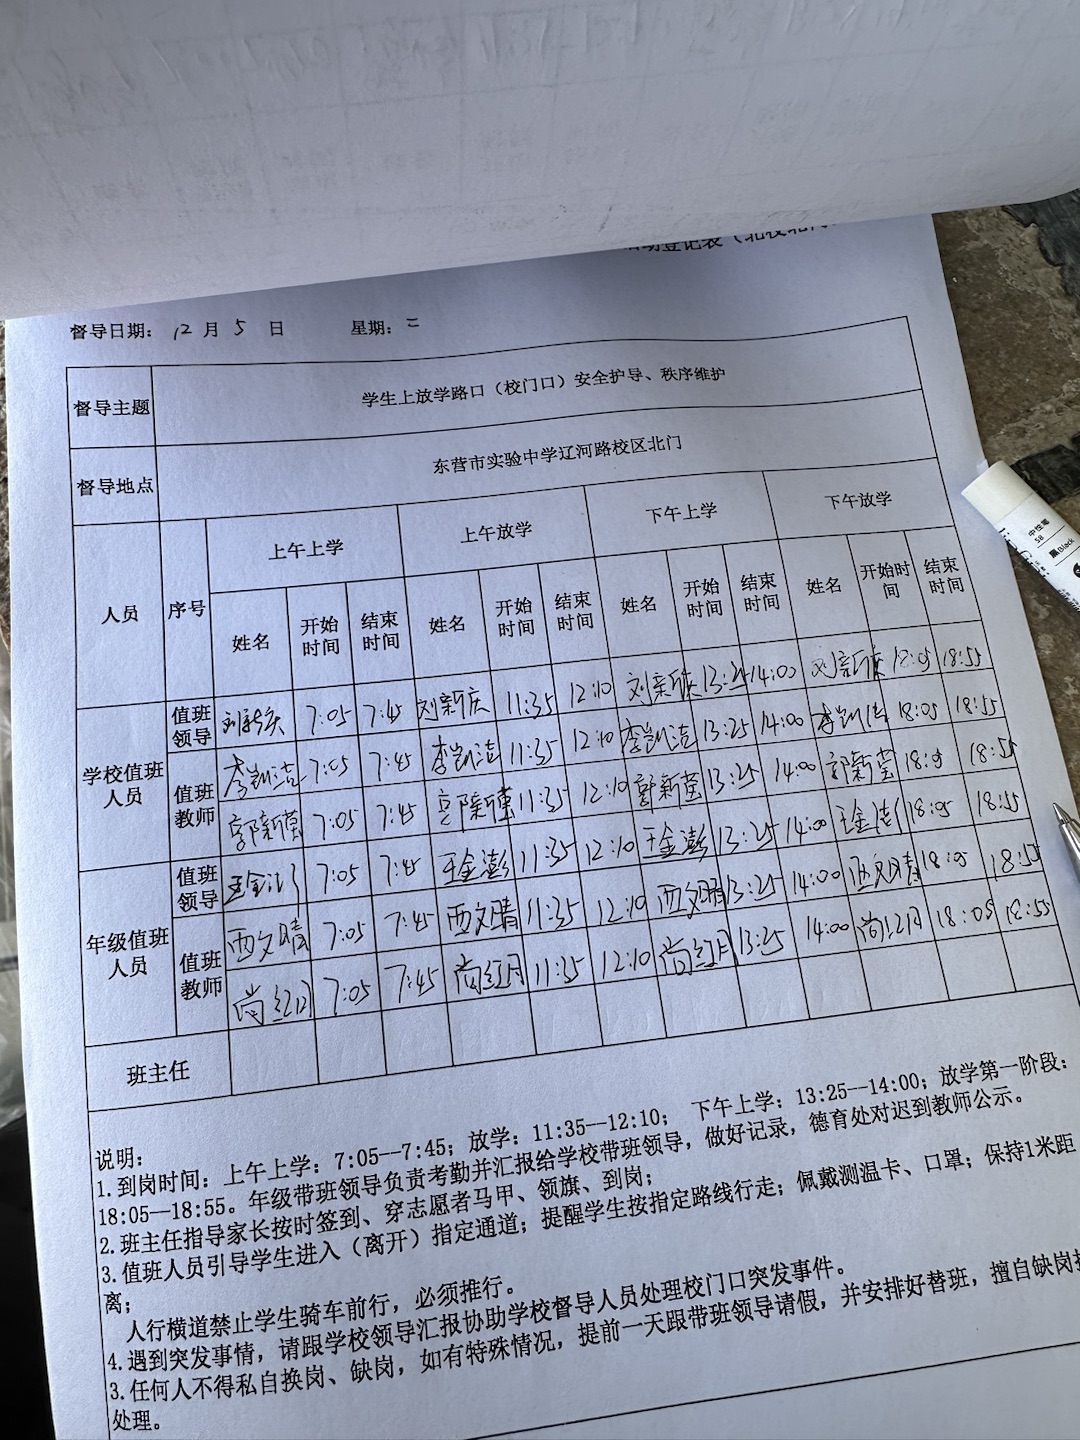 登记表（北校北门
督导日期： 12 月 5 日 星期：二
督导主题 学生上放学路口（校门口）安全护导、秩序维护
督导地点 东营市实验中学辽河路校区北门
人员 序号 上午上学 上午放学 下午上学 下午放学
姓名 开始时间 结束时间 姓名 开始时间 结束时间 姓名 开始时间 结束时间 姓名 开始时间 结束时间
学校值班人员 值班领导 刘新庆 7:05 7:45 刘新庆 11:35 12:10 刘新庆 13:25 14:00 刘新庆 18:05 18:55
值班教师 李凯洁 7:05 7:45 李凯洁 11:35 12:10 李凯洁 13:25 14:00 李凯洁 18:05 18:55
7:05 7:45 11:35 12:10 13:25 14:00 18:05 18:55
年级值班人员 值班领导 王金澎 7:05 7:45 王金澎 11:35 12:10 王金澎 13:25 14:00 王金澎 18:05 18:55
值班教师 西文晴 7:05 7:45 西文晴 11:35 12:10 西文晴 13:25 14:00 西文晴 18:05 18:55
尚红月 7:05 7:45 尚红月 11:35 12:10 尚红月 13:25 14:00 尚红月 18:05 18:55
班主任
说明：
1.到岗时间：上午上学：7:05--7:45；放学：11:35--12:10； 下午上学：13:25--14:00；放学第一阶段：
18:05--18:55。年级带班领导负责考勤并汇报给学校带班领导，做好记录，德育处对迟到教师公示。
2.班主任指导家长按时签到、穿志愿者马甲、领旗、到岗；
3.值班人员引导学生进入（离开）指定通道；提醒学生按指定路线行走；佩戴测温卡、口罩；保持1米距
离；
人行横道禁止学生骑车前行，必须推行。
4.遇到突发事情，请跟学校领导汇报协助学校督导人员处理校门口突发事件。
3.任何人不得私自换岗、缺岗，如有特殊情况，提前一天跟带班领导请假，并安排好替班，擅自缺岗
处理。
中性笔
黑Black